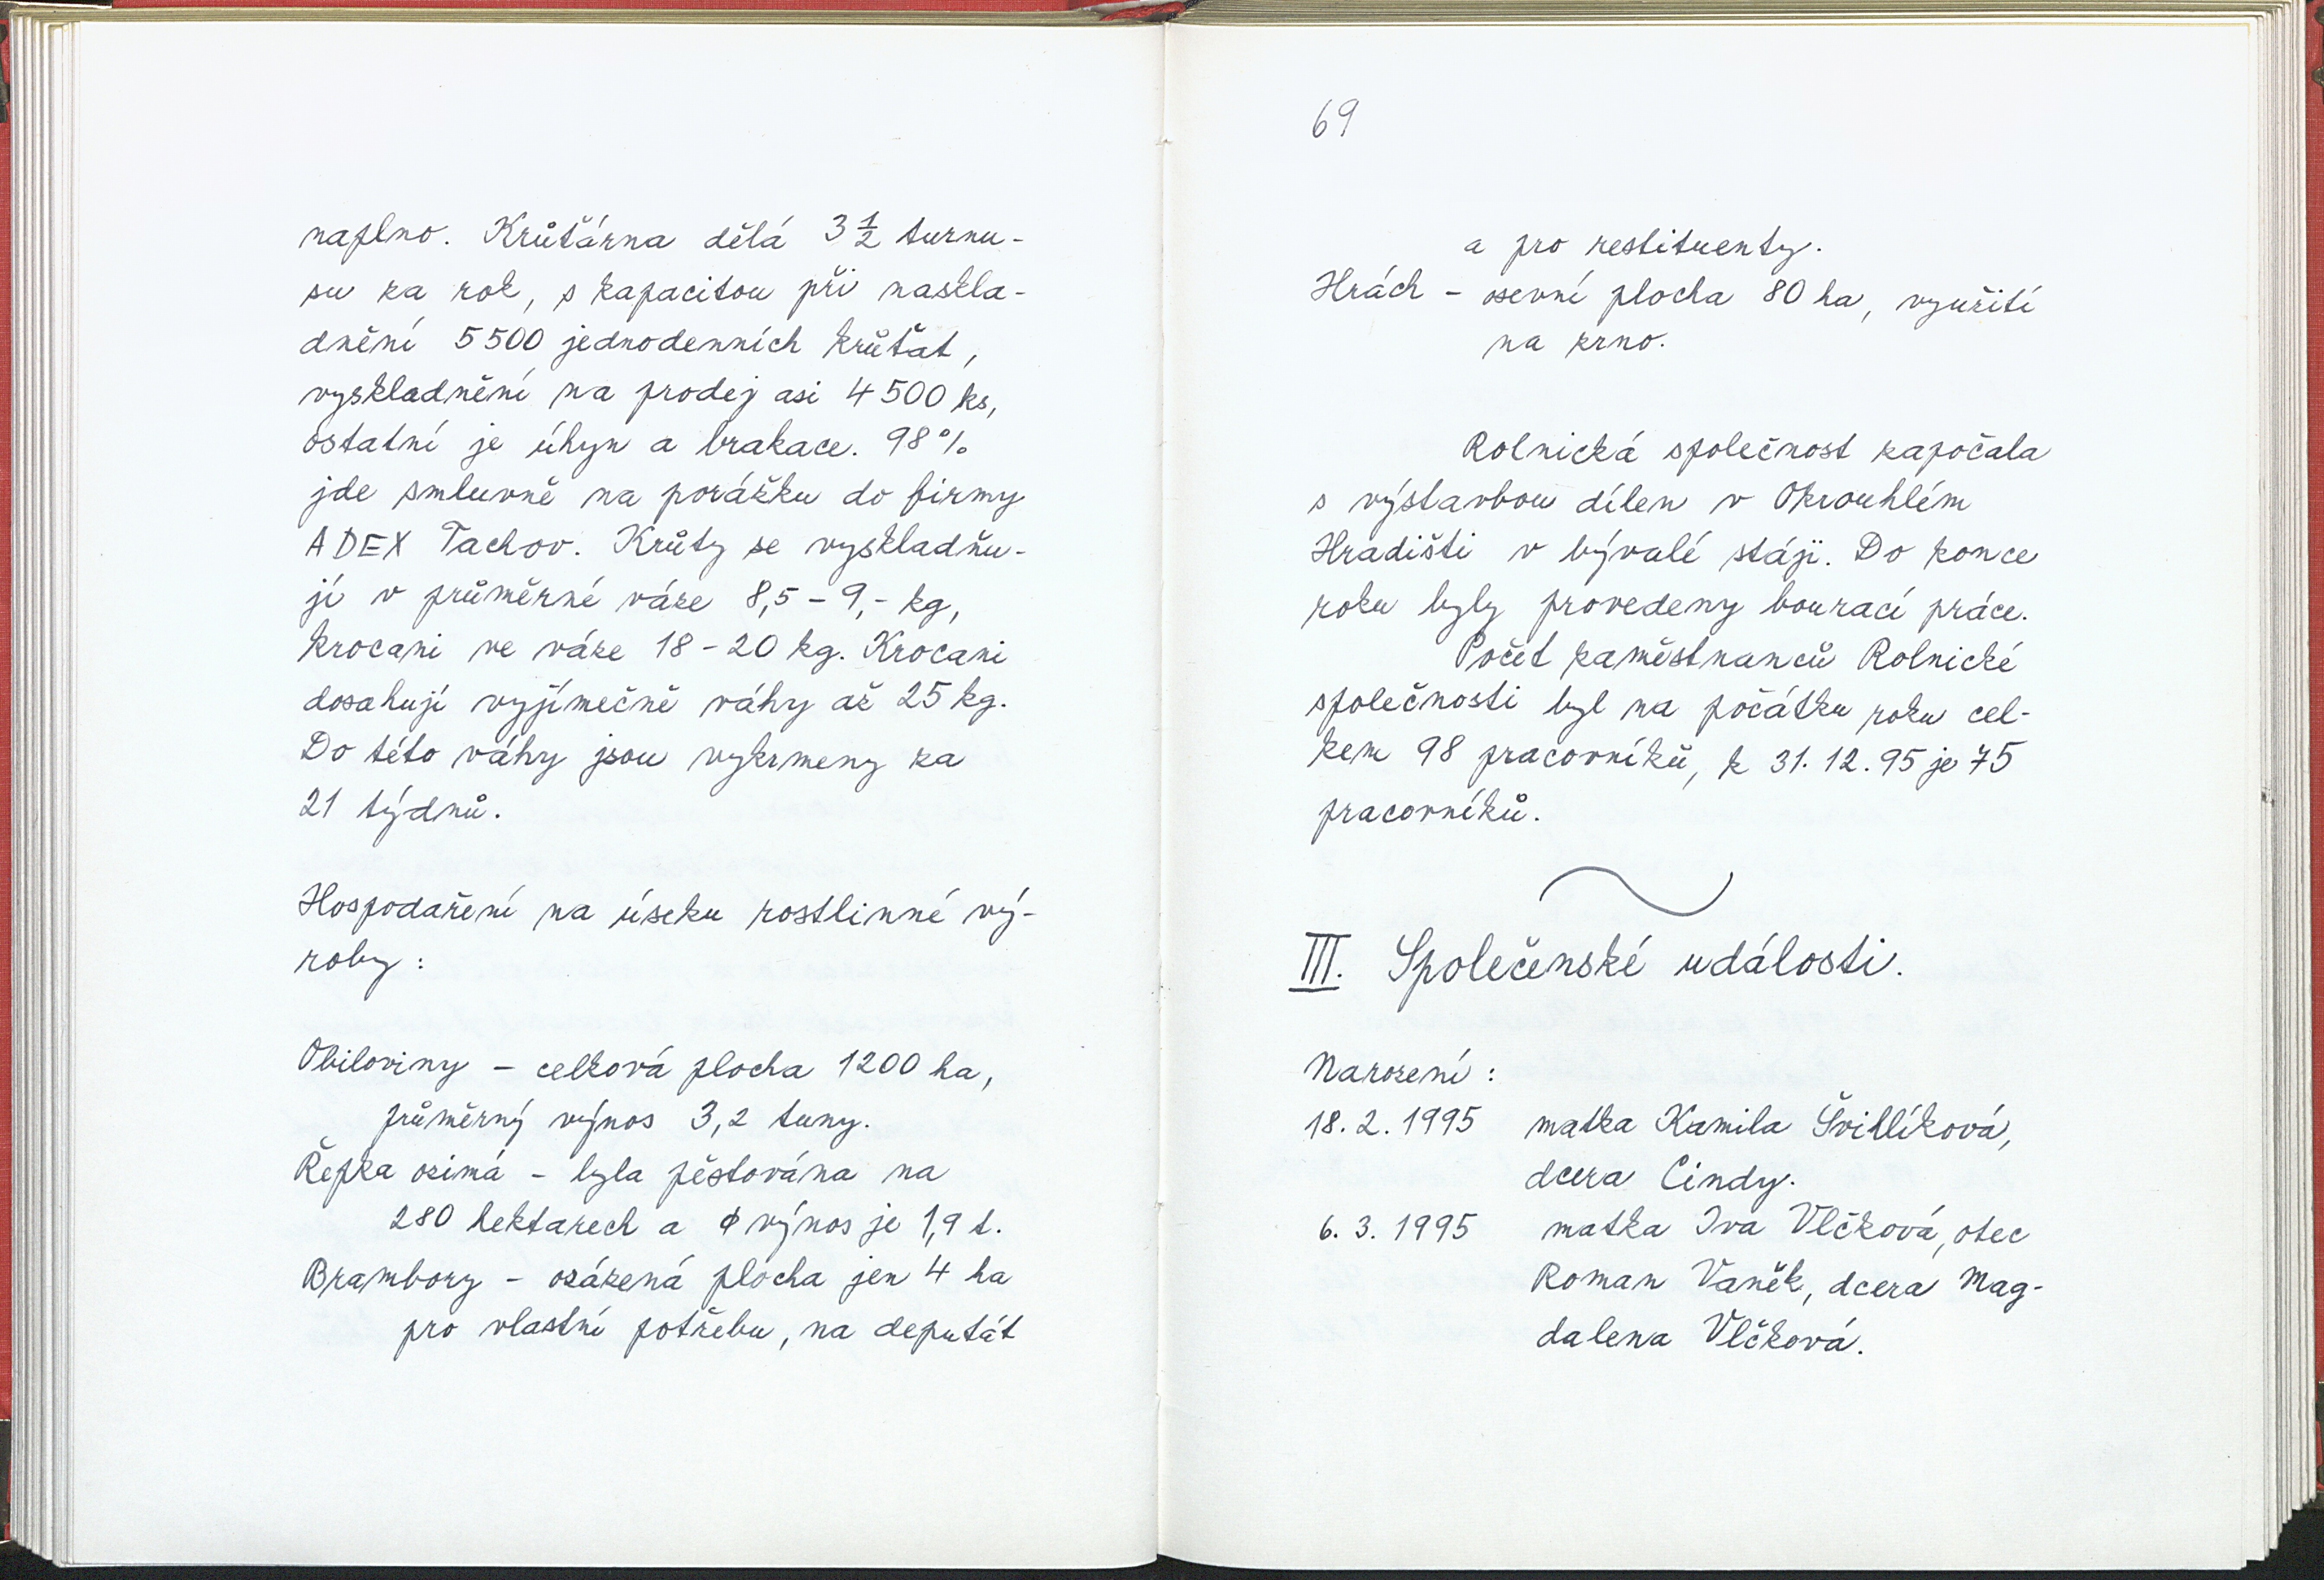 naplno. Krůťárna dělá 3 1/2 turnu-
su za rok, s kapacitou při naskla-
dnění 5500 jednodenních krůťat,
vyskladnění na prodej asi 4500 ks,
ostatní je úhyn a brakace. 98%
jde smluvně na porážku do firmy
ADEX Tachov. Krůty se vyskladňu-
jí v průměrné váze 8,5 - 9,- kg,
krocani ve váze 18 - 20 kg. Krocani
dosahují vyjímečně váhy až 25 kg.
Do této váhy jsou vykrmeny za
21 týdnů.
Hospodaření na úseku rostlinné vý-
roby :
Obiloviny - celková plocha 1200 ha,
průměrný výnos 3,2 tuny.
Řepka ozimá - byla pěstována na
280 hektarech a ϕ výnos je 1,9 t.
Brambory - osázená plocha jen 4 ha
pro vlastní potřebu, na deputát
69
a pro restituenty.
Hrách - osevní plocha 80 ha, využití
na zrno.
Rolnická společnost započala
s výstavbou dílen v Okrouhlém
Hradišti v bývalé stáji. Do konce
roku byly provedeny bourací práce.
Počet zaměstnanců Rolnické
společnosti byl na počátku roku cel-
kem 98 pracovníků, k 31. 12. 95 je 75
pracovníků.
III. Společenské události.
Narození :
18. 2. 1995 matka Kamila Švihlíková,
dcera Cindy.
6. 3. 1995 matka Iva Vlčková, otec
Roman Vaněk, dcera Mag-
dalena Vlčková.